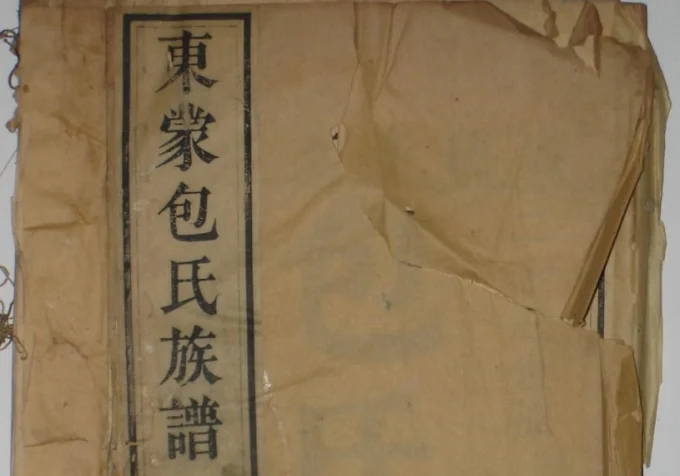 東蒙包氏族譜